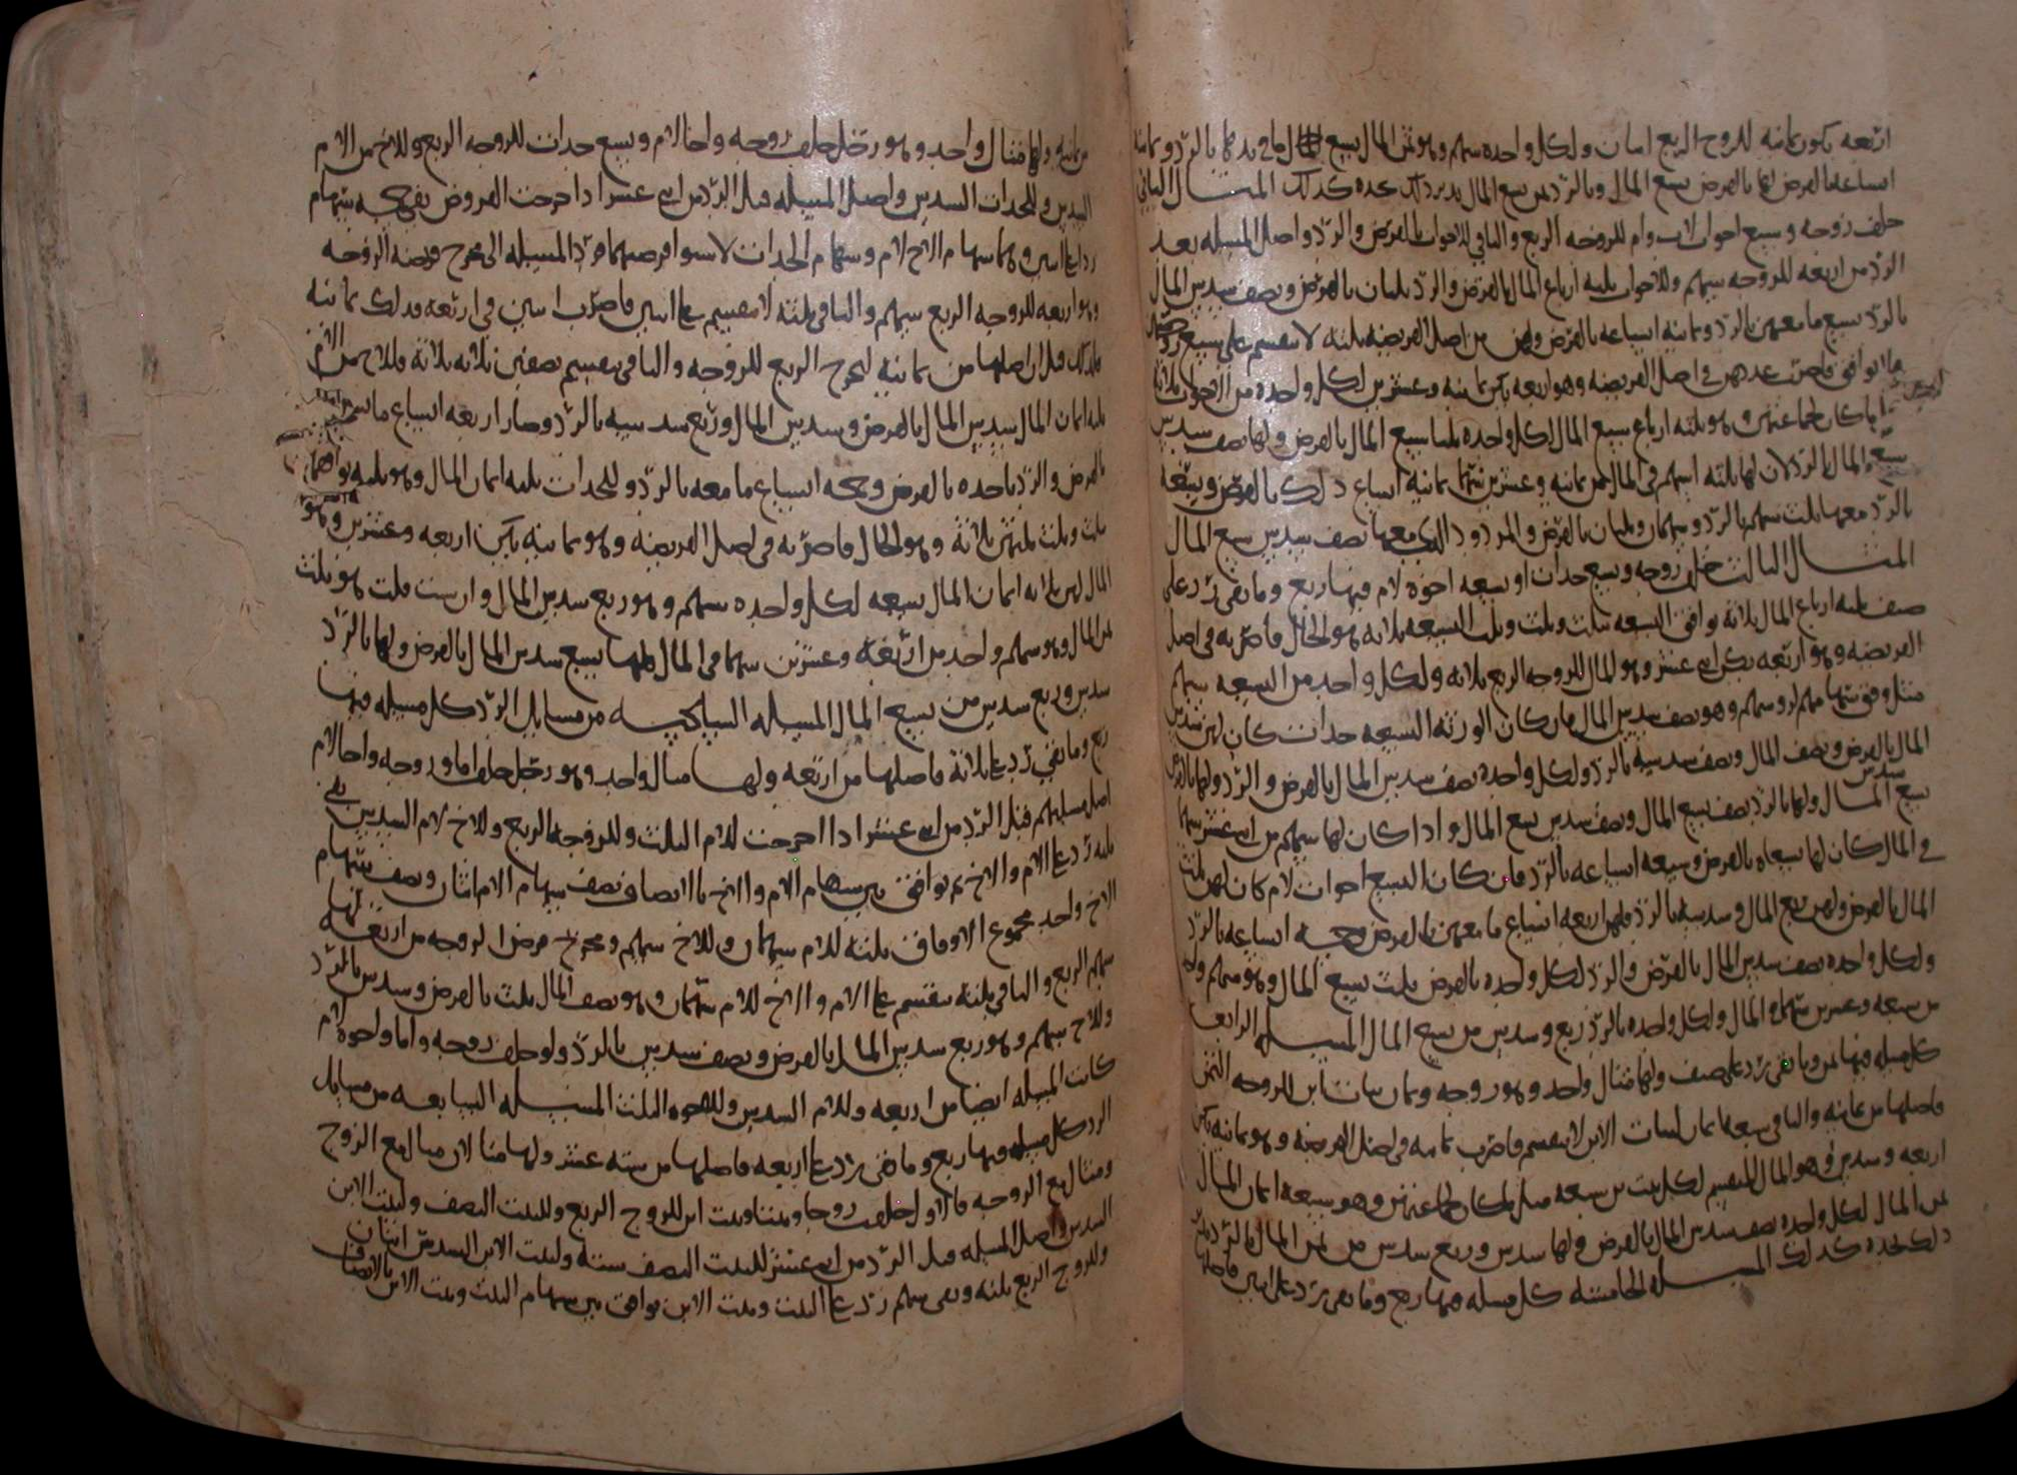 اربعه يكون ثمانيه للزوج الربع اثنان ولكل واحده سهم وهو ثمن المال بالرد وثمانيه
اتساعه بالفرض سبع المال وبالرد ثمن سبع المال يزيد ذلك تجده كذلك المثال الثاني
خلف زوجه وسبع اخوات لاب وام للزوجه الربع والباقي للاخوات بالفرض والرد واصل المسيله بعد
الرد من اربعه للزوجه سهم وللاخوات ثلثه ارباع المال بالفرض والرد ثلثان بالفرض ونصف سدس المال
بالرد سبع ما معهن بالرد وثمانيه اسباعه بالفرض ولهن من اصل الفريضه ثلثه لا تنقسم على سبع
ولا توافق فاضرب عددهن في اصل الفريضه وهو اربعه يكن ثمانيه وعشرين لكل واحده من الاخوات ثلاثه
ما كان لجماعتهن وهو ثلثه ارباع سبع المال لكل واحده ثلثا سبع المال بالفرض ولها نصف سدس
سبع المال بالرد لان لها ثلثه اسهم في المال من ثمانيه وعشرين سهما ثمانيه اتساع ذلك بالفرض وتسعه
بالرد معها ثلث سهم بالرد وسهمان وثلثان بالفرض والمردود الذي معها نصف سدس سبع المال
المثال الثالث خلف زوجه وسبع جدات او سبعه اخوه لام فيها ربع وما بقي يرد على
صنف ثلثه ارباع المال ثلاثه توافق التسعه بثلث وثلث وثلث التسعه ثلاثه هو الحال فاضربه في اصل
الفريضه وهو اربعه يكن اثني عشر وهو المال للزوجه الربع ثلاثه ولكل واحد من التسعه سهم
مثل وفق سهامهم لرؤسهم وهو نصف سدس المال فان كان الورثه التسعه جدات كان لهن سدس
المال بالفرض ونصف المال ونصف سدسه بالرد ولكل واحده نصف سدس المال بالفرض والرد ولها بالفرض
سبع المال ولها بالرد نصف سبع المال ونصف سدس سبع المال واذا كان لها سهم من اثني عشر سهما
في المال كان لها تسعاه بالفرض وسبعه اتساعه بالرد فان كان التسع اخوات لام كان لهن ثلث
المال بالفرض ولهن ربع المال وسدسه بالرد فلهن اربعه اتساع ما معهن بالفرض وخمسه اتساعه بالرد
ولكل واحده نصف سدس المال بالفرض والرد لكل واحده بالفرض ثلث تسع المال وهو سهم واحد
من سبعه وعشرين سهما والمال ولكل واحده بالرد ربع وسدس من تسع المال المسيله الرابعه
كل مسيله فيها ثمن وما بقي يرد على صنف ولها مثال واحد وهو زوجه وثمان بنات ابن للزوجه الثمن
فاصلها من ثمانيه والباقي سبعه على ثمان لبنات الابن لا تنقسم فاضرب ثمانيه في اصل الفريضه وهو ثمانيه يكن
اربعه وستين وهو المال المنقسم لكل بنت ابن سبعه مثل ما كان لجماعتهن وهو سبعه اثمان المال
ثمن المال لكل واحده نصف سدس المال بالفرض ولها سدس وربع سدس من ثمن المال بالرد
ذلك تجده كذلك المسيله الخامسه كل مسيله فيها ربع وما بقي يرد على اثنين فاصلها
من ثمانيه ولها مثال واحد وهو رجل خلف زوجه واخا لام وسبع جدات للزوجه الربع وللاخ من الام
السدس وللجدات السدس واصل المسيله قبل الرد من اثني عشر اذا اخرجت الفروض بقي خمسه سهام
رد على اثنين وهما سهام الاخ لام وسهام الجدات لاستوا فرضهما فرد المسيله الى مخرج فريضه الزوجه
وهو اربعه للزوجه الربع سهم والباقي ثلثه لا تنقسم على اثنين فاضرب اثنين في اربعه وذلك ثمانيه
فلذلك قلنا اصلها من ثمانيه ليخرج الربع للزوجه والباقي ينقسم نصفين ثلاثه ثلاثه فللاخ من الام
ثلثه اثمان المال سدس المال بالفرض وسدس المال وربع سدسه بالرد وصار اربعه اتساع ما معه
بالفرض والرد ياخذه بالفرض وخمسه اتساع ما معه بالرد وللجدات ثلثه اثمان المال وهو ثلثه توافقهما
بثلث وثلث ثلثهن ثلاثه وهو الحال فاضربه في اصل الفريضه وهو ثمانيه يكن اربعه وعشرين وهو
المال لهن ثلاثه اثمان المال تسعه لكل واحده سهم وهو ربع سدس المال وان شيت قلت هو ثلث
ثمن المال وهو سهم واحد من اربعه وعشرين سهما في المال فلها تسع سدس المال بالفرض ولها بالرد
سدس وربع سدس من تسع المال المسيله السادسه من مسايل الرد كل مسيله فيها
ربع وما بقي يرد على ثلاثه فاصلها من اربعه ولها مثال واحد وهو رجل خلف اما وزوجه واخا لام
اصل مسيلتهم قبل الرد من اثني عشر اذا اخرجت للام الثلث وللزوجه الربع وللاخ لام السدس بقي
ثلثه رد على الام والاخ ثم توافق بين سهام الام والاخ بالانصاف نصف سهام الام اثنان ونصف سهام
الاخ واحد مجموع الاوفاق ثلثه للام سهمان وللاخ سهم ومخرج فرض الزوجه من اربعه لها
سهم الربع والباقي ثلثه تنقسم على الام والاخ للام سهمان وهو نصف المال ثلث بالفرض وسدس بالرد
وللاخ سهم وهو ربع سدس المال بالفرض ونصف سدس بالرد ولو خلف زوجه واما واخوه لام
كانت المسيله ايضا من اربعه وللام السدس وللاخوه الثلث المسيله السابعه من مسايل
الرد كل مسيله فيها ربع وما بقي يرد على اربعه فاصلها من سته عشر ولها مثالان مثال مع الزوج
ومثال مع الزوجه فالاول خلفت زوجا وبنتا وبنت ابن للزوج الربع وللبنت النصف ولبنت الابن
السدس واصل المسيله قبل الرد من اثني عشر للبنت النصف سته ولبنت الابن السدس اثنان
وللزوج الربع ثلثه وبقي سهم رد على البنت وبنت الابن توافق بين سهام البنت وبنت الابن بالانصاف